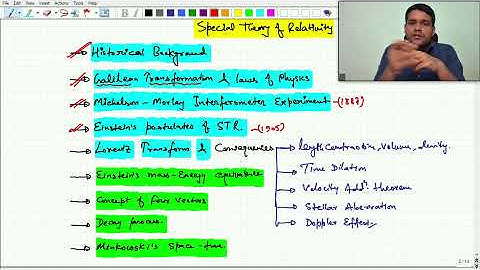 Special Theory of Relativity
Historical Background
Galilean Transformation & Laws of Physics
Michelson-Morley Interferometer Experiment - (1887)
Einstein's postulates of STR. - (1905)
Lorentz Transform & Consequences
Length Contraction, Volume, density.
Time Dilation
Velocity Addn theorem
Stellar Aberration
Doppler Effect
Einstein's mass-Energy equivalence
Concept of four vectors
Decay process.
Minkowoski's Space-time.